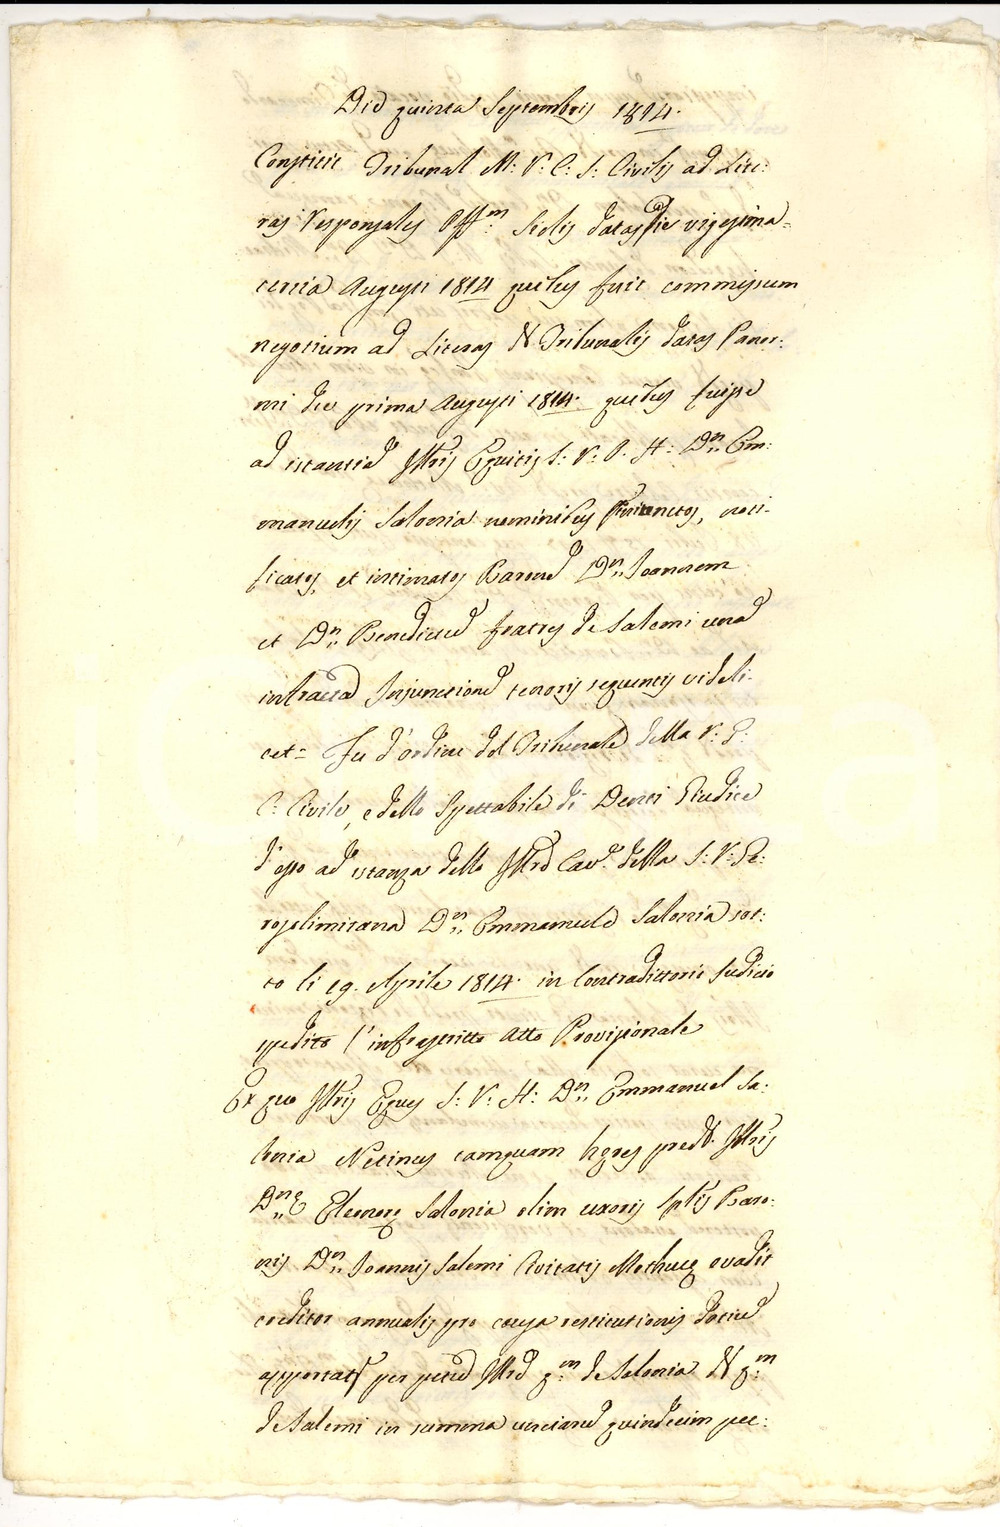 Die quinta Septembris 1814.
Constitit Tribunal M: R: C: S: Civilis ad Lite:
ras responsales Off.m Siclis datas die vigesima
tertia Augusti 1814 quibus fuit commissum
negotium ad Literas Tribunalis datas Panor:
mi die prima Augusti 1814. quibus fuisse
ad istantia Ill.ris Equitis S: R: H: D.n Em:
manuelis Salonia nominibus, noti:
ficatos, et intimatos Barone D.n Joannem
et D.n Benedictu fratres de Salemi una
infracta Injunctione tenoris sequentis videli:
cet = Fu d'ordine del Tribunale della R: G:
C: Civile, e dello Spettabile di Denti Giudice
d'esso ad istanza dello Ill.re Cav.e della S: R: Ge:
rosolimitana D.n Emmanuele Salonia sot:
to li 29. Aprile 1814. in Contradittorio Iudicio
spedito l'infrascritto Atto Provisionale
Ex quo Ill.ris Eques S: R: H: D.n Emmanuel Sa:
lonia Netinus tamquam hæres pred. Ill.ris
D.næ Eleonoræ Salonia olim uxoris Sp.lis Baro:
nis D.n Joannis Salemi Civitatis Mothucæ evadit
creditor annualis pro causa restitutionis dotiu
apportat per Ill.re q.m de Salonia q.m
de Salemi in summa unciaru quindecim pec: